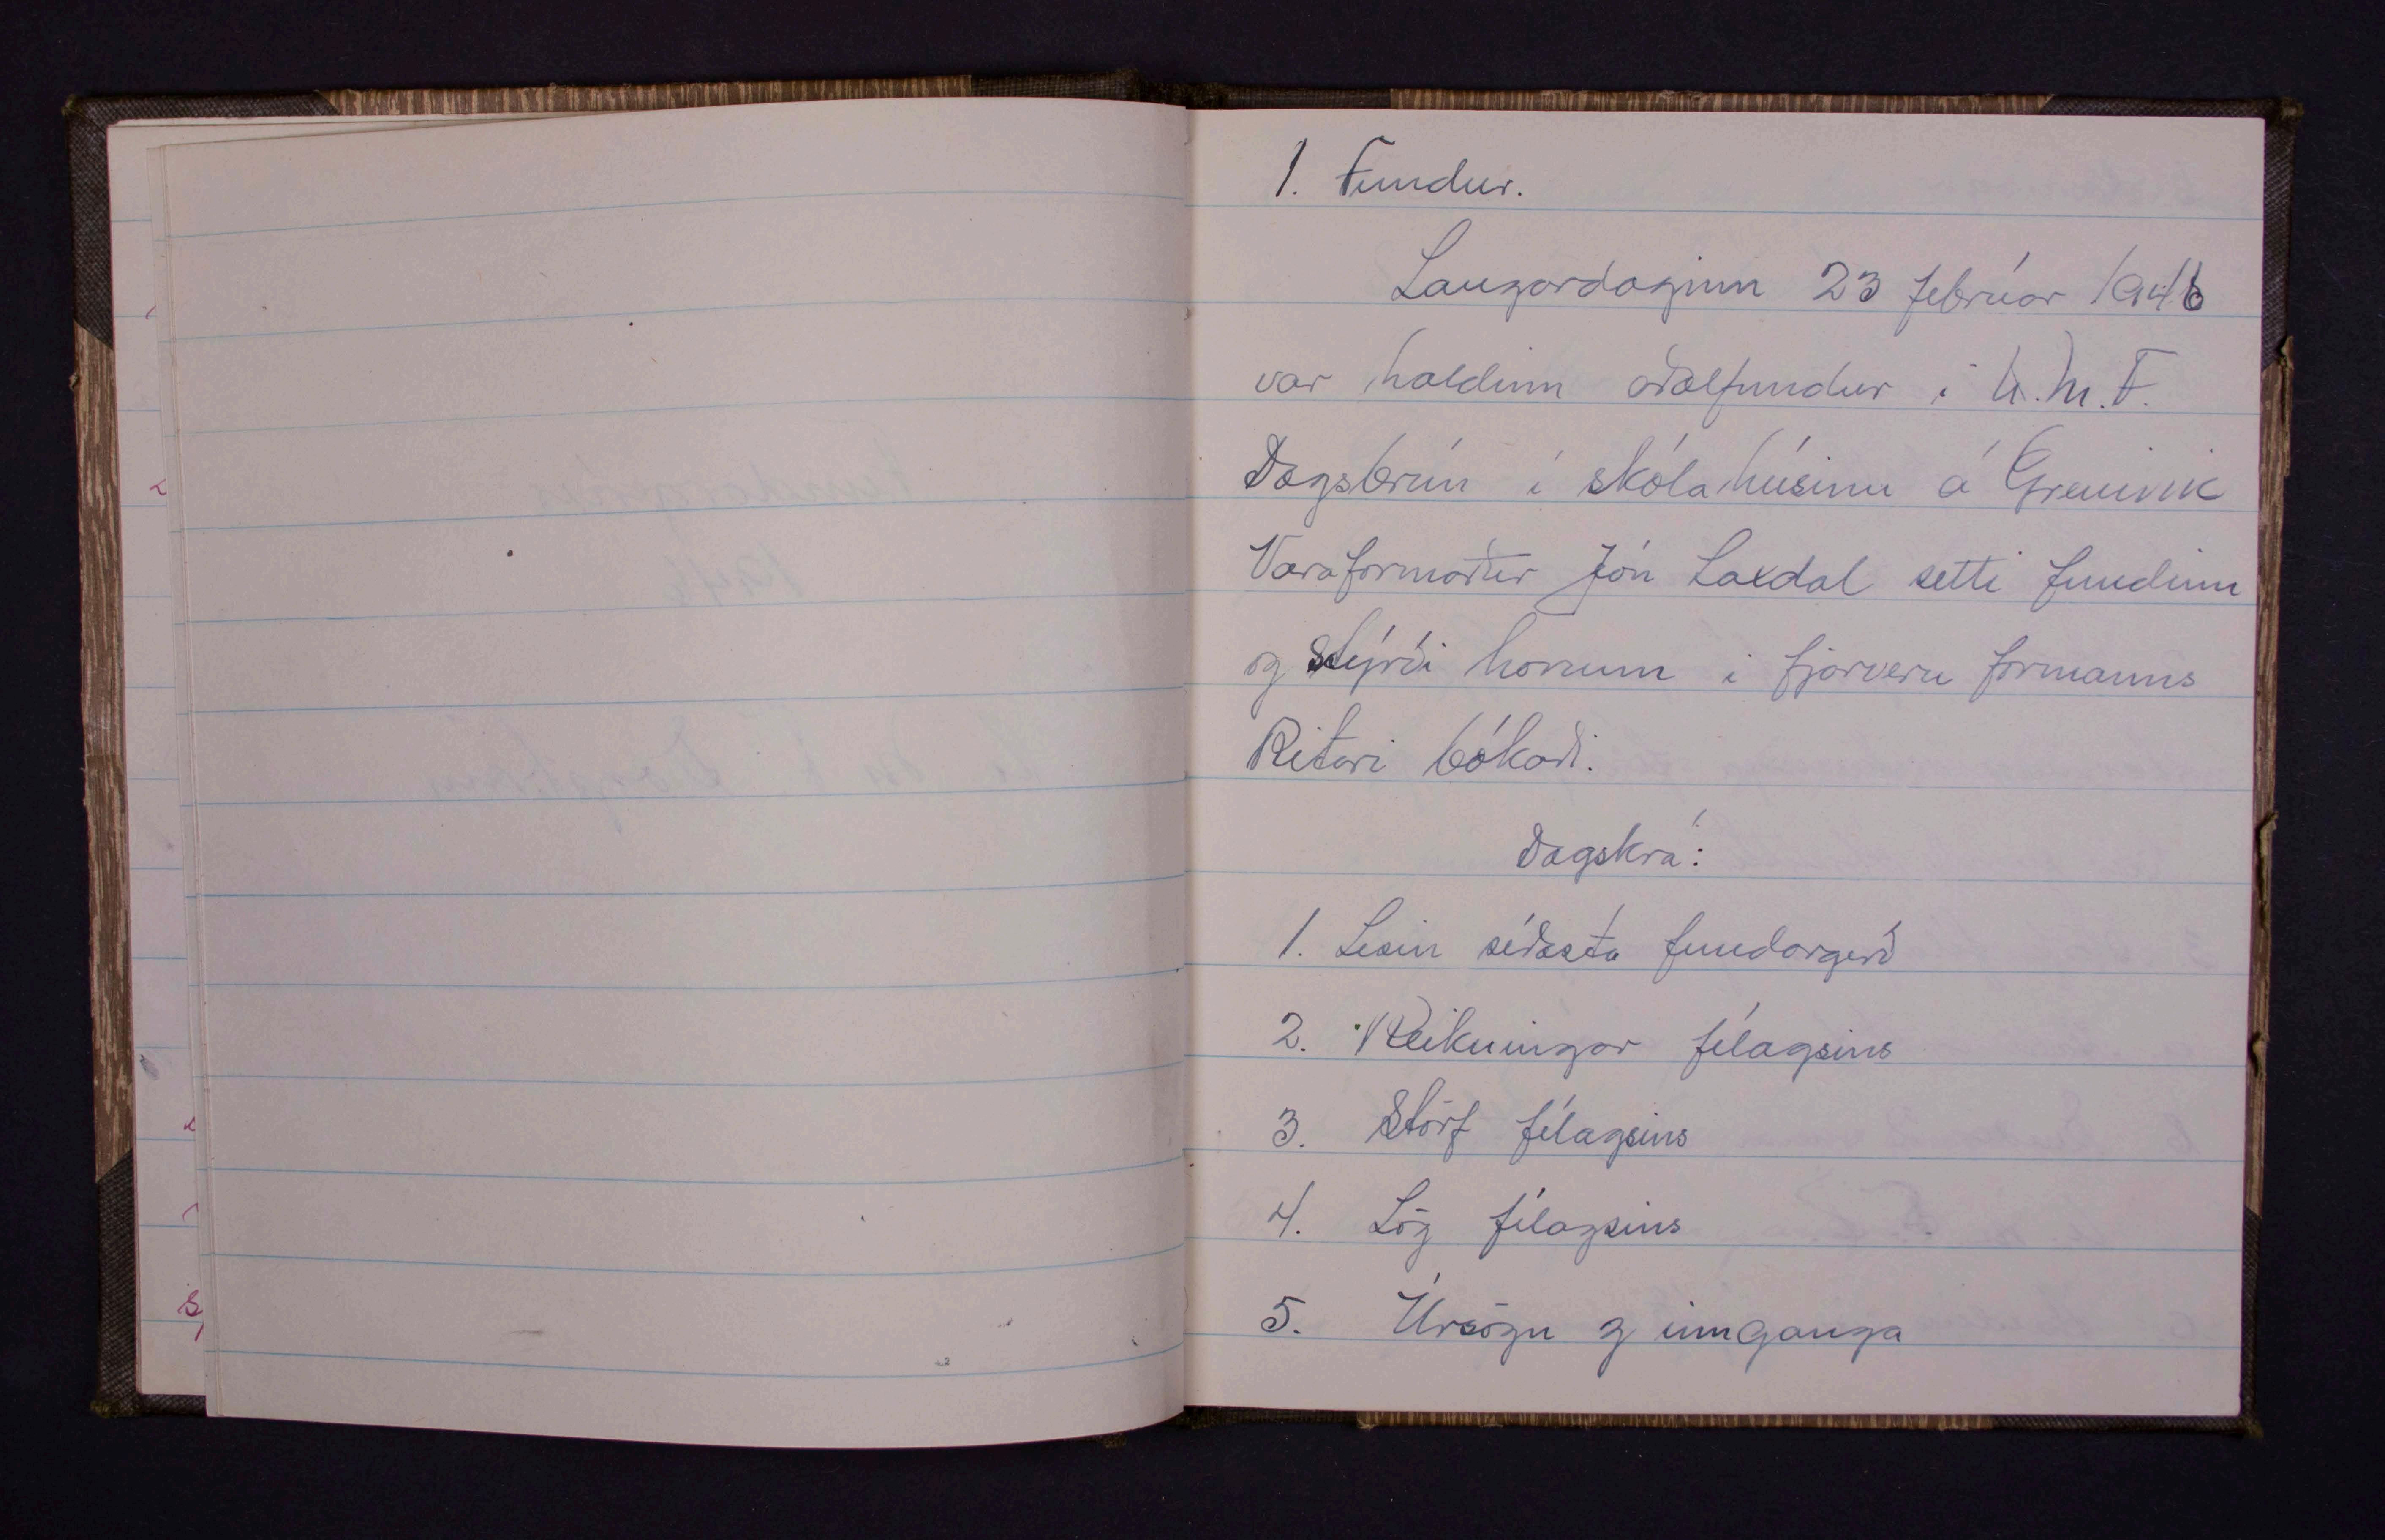 1. Fundur.
Laugardaginn 23 febrúar 1946
var haldinn aðalfundur i U.M.F.
Dagsbrún í skólahúsinu á Grenivik
Varaformaður Jón Laxdal setti fundinn
og stýrði honum i fjarveru formanns
Ritari bókaði.
Dagskrá:
1. Lesin síðasta fundargerð
2. Reikningar félagsins
3. Störf félagsins
4. Lög félagsins
5. Úrsögn og innganga